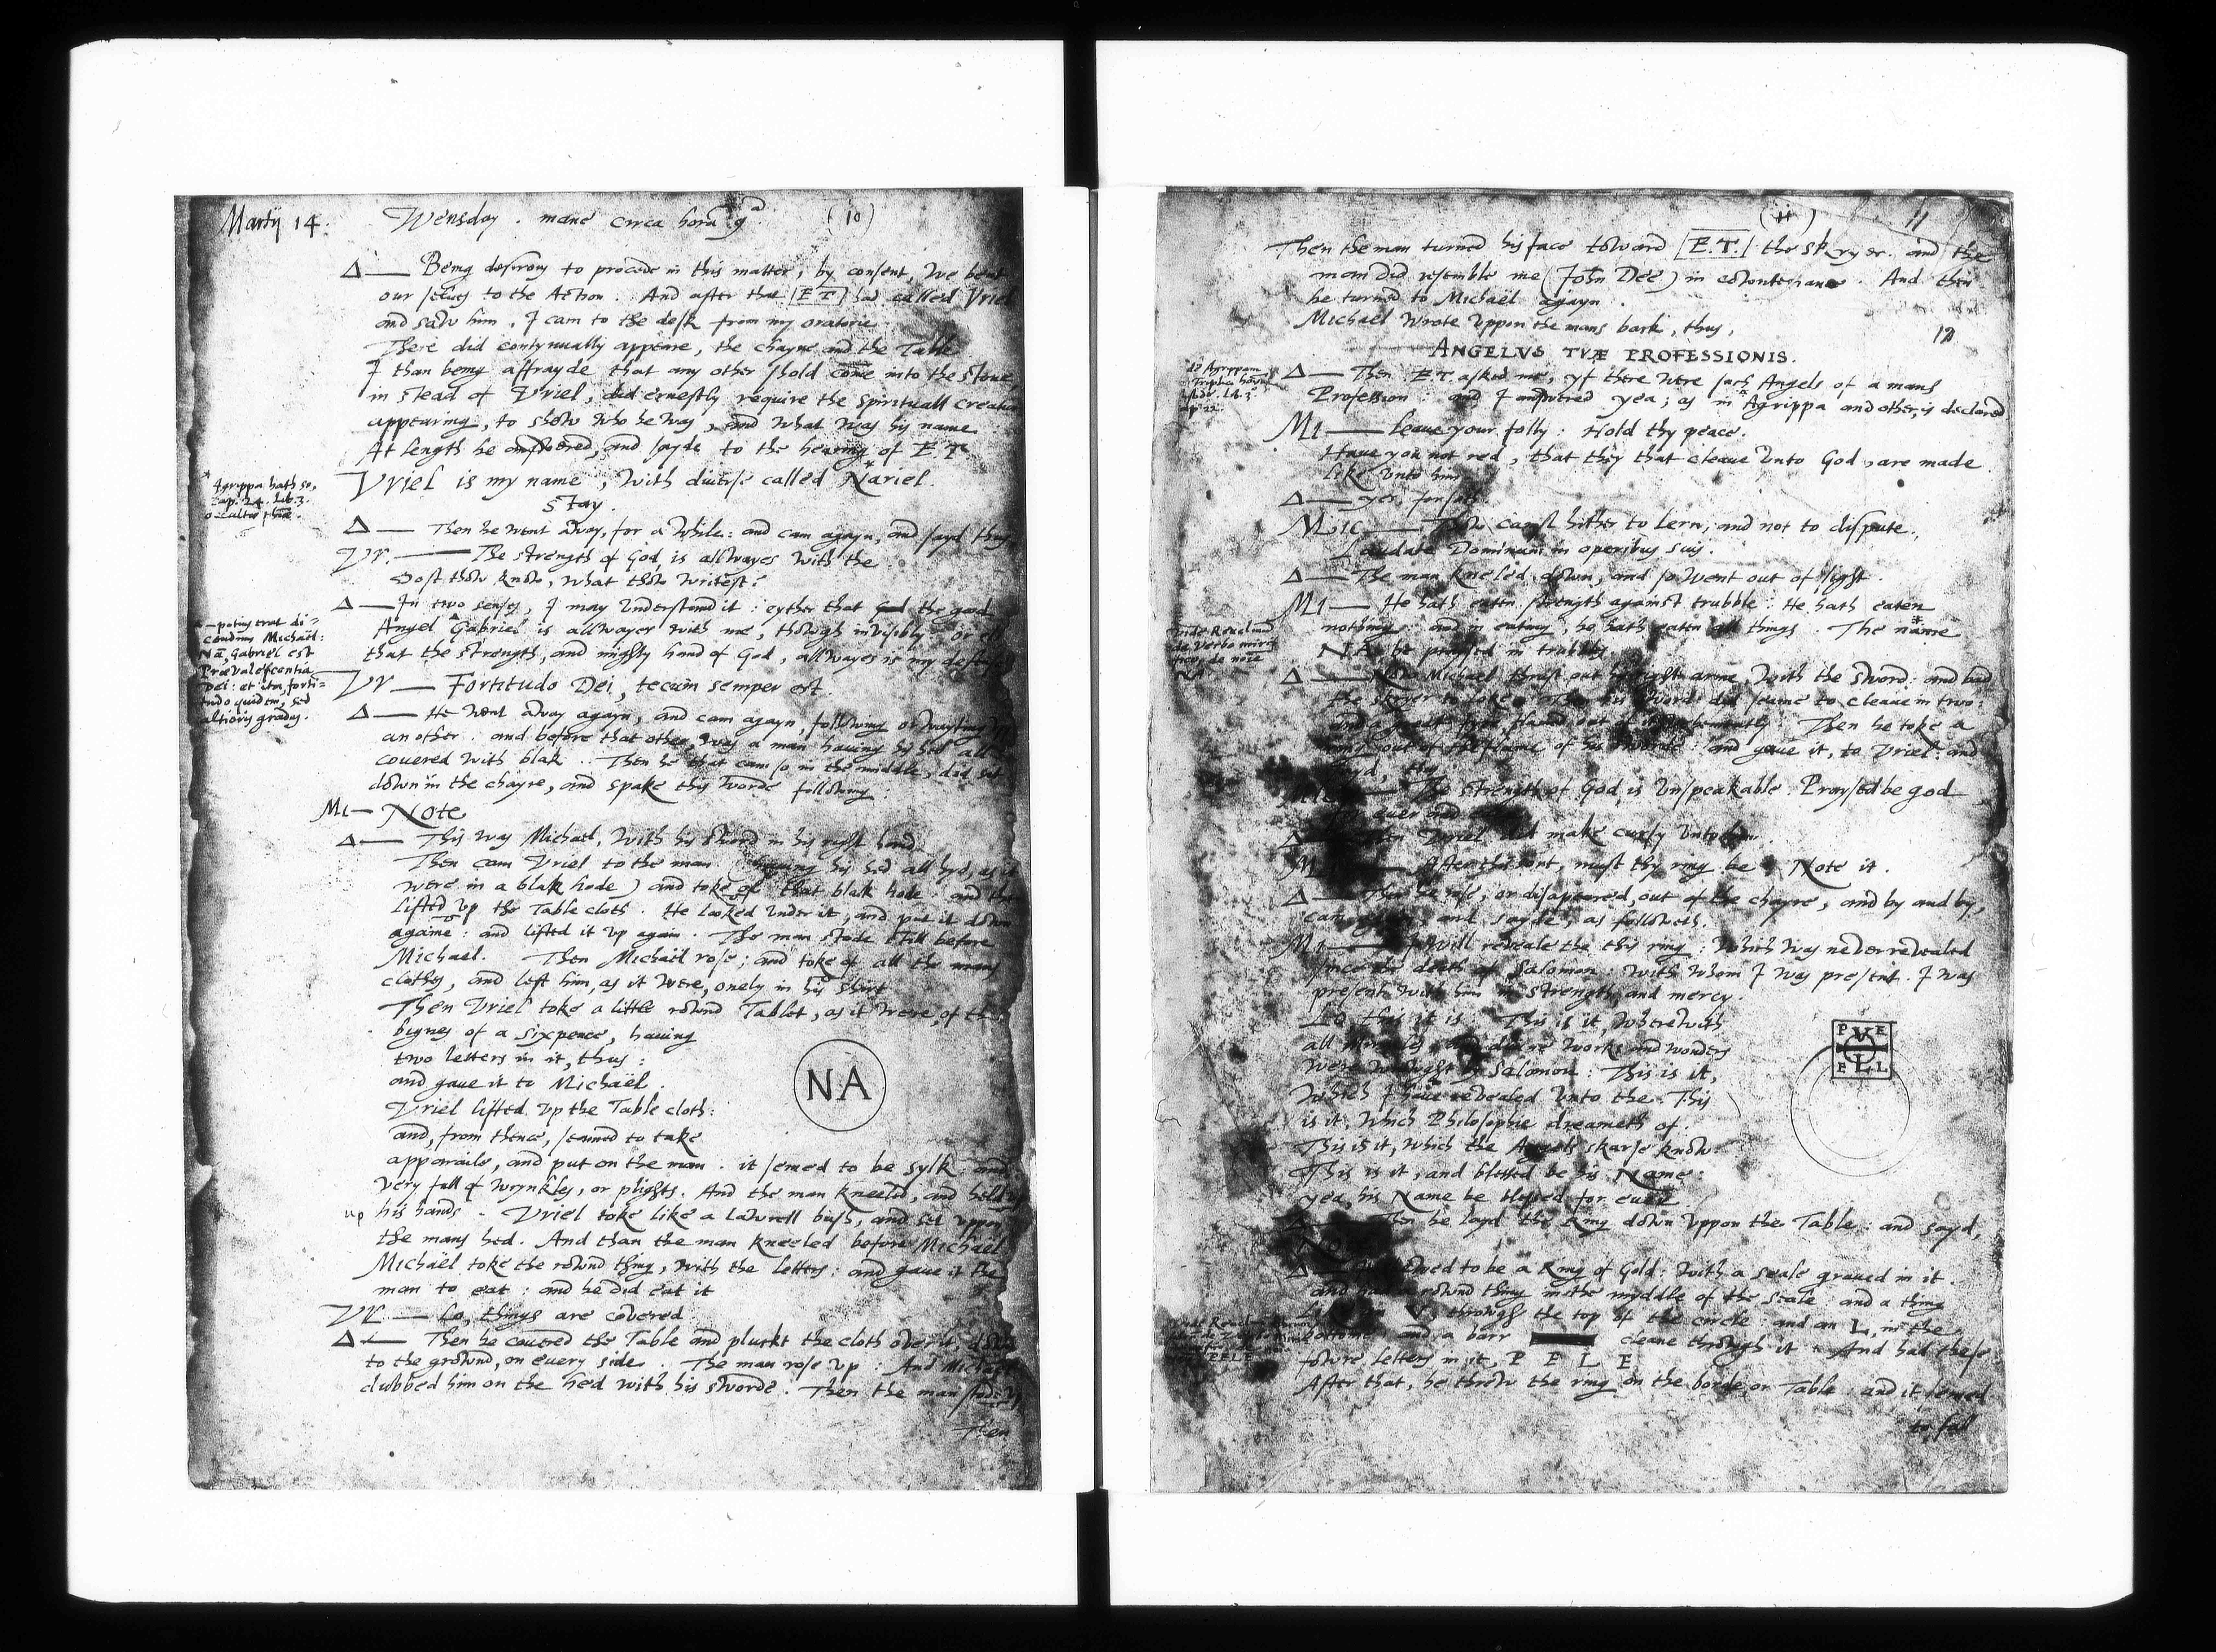 Martij 14. Wensday. mane circa horā 9ᵃ (10)
Δ — Being desirous to procede in this matter, by consent, we bent
our selves to the Action. And after that E T had called Vriel
and saw him, I cam to the desk from my oratorie.
There did contynually appeare, the chayre and the Table
I than being affrayde that any other shold come into the stone,
in stead of Vriel, did ernestly require the spirituall creature
appearing, to show who he was, and what was his name
At length he answered, and sayde to the hearing of E T
Vriel is my name, with diverse called Nariel.
* Agrippa hath so,
cap. 24. Lib. 3.
occultæ phiæ.
Stay.
Δ — Then he went away, for a while: and cam agayn, and sayd thus
Vr. — The strength of God, is allwayes with the
Dost thow know, what thow writest?
Δ — In two senses, I may vnderstand it: eyther that the good
Angel Gabriel is allwayes with me, though invisibly: or els
that the strength, and mighty hand of God, allwayes is my defense
potius erat di-
cendum Michaël:
Nā, Gabriel est
Prævalescentia
Dei: et ita, forti-
tudo quidem, sed
altioris gradus.
Vr — Fortitudo Dei, tecum semper est.
Δ — He went away agayn, and cam agayn, following or wayting vpon
an other: and before that other, was a man having his hed all
covered with blak. Then he that cam so in the middle, did sit
down in the chayre, and spake this worde following:
Mi — Note
Δ — This was Michael, with his sword in his right hand.
Then cam Vriel to the man (having his hed all hyd, as it
were in a blak hode) and toke of that blak hode: and then
Lifted vp the Table cloth. He looked vnder it, and put it down
agayne: and lifted it vp again. The man stode still before
Michael. Then Michaël rose; and toke of all the mans
clothes, and left him, as it were, onely in his shirt
Then Vriel toke a little rownd Tablet, as it were of the
bignes of a sixpence, having
two letters in it, thus:
and gave it to Michaël.
NA
Vriel lifted vp the Table cloth:
and, from thence, seamed to take
apparaile, and put on the man. it semed to be sylk: and
very full of wrynkles, or plights. And the man kneeled, and held
up his hands. Vriel toke like a lawrell bush, and set vppon
the mans hed. And than the man kneeled before Michaël
Michaël toke the rownd thing, with the letters: and gave it the
man to eat: and he did eat it
VR — Lo, things are covered
Δ — Then he covered the Table and pluckt the cloth over it, down
to the grownd, on every side. The man rose vp: And Michael
dubbed him on the hed with his sworde. Then the man stode vp
Then
(11) 11
Then the man turned his face toward E.T. the skryer: and the
man did resemble me (John Dee) in cowntenance. And then
he turned to Michaël agayn.
Michael wrote vppon the mans back, thus,
12
ANGELVS TVÆ PROFESSIONIS.
Δ — Then E.T. asked me, yf there were such Angels of a mans
Profession: and I answered yea; as in Agrippa and other, is declared
MI — Leave your folly: Hold thy peace.
Have you not red, that they that cleave vnto God, are made
like vnto him.
Δ — yes, forsoth.
Mic — Thow camst hither to lern, and not to dispute.
Laudate Dominum in operibus suis.
Δ — The man kneled down, and so went out of sight.
MI — He hath eaten strength against trubble: He hath eaten
nothing: and in eating, he hath eaten all things. The name
NA, be praysed in trubbles.
Vide Reuclinū
de Verbo miri-
fico, de noīe
NA.
Δ — Now Michael thrust out his right arme, with the sword: and bad
the skryer to loke. Then his sword did seame to cleave in two:
and a great fyre flamed out of it, vehemently. Then he toke a
ring out of the flame of his sworde: and gave it, to Vriel: and
sayd, thus
The strength of God, is vnspeakable. Praysed be god
for ever and ever
Then Vriel did make cursy vnto him.
After this sort, must thy ring be: Note it.
Δ — Then he rose, or disapeared, out of the chayre, and by and by,
cam agayn, and sayde, as followeth.
MI — I will reveale the this ring: which was never revealed
since the death of Salomon: with whom I was present. I was
present with him in strength, and mercy.
Lo, this it is. This is it, wherewith
all Miracles, and divine works and wonders
were wrowght by Salomon: This is it,
which I have revealed vnto the. This
is it, which Philosophie dreameth of.
This is it, which the Angels skarse know.
This is it, and blessed be his Name:
yea, his Name be blessed for ever
P V E
E L L
Then he layd the Ring down vppon the Table: and sayd,
Note
Δ — It shewed to be a Ring of Gold: with a seale graved in it.
and had a rownd thing in the myddle of the seale: and a thing
like an V, throwgh the top of the circle: and an L, in the
bottome: and a barr cleane throwgh it: And had these
fowre letters in it, P E L E
After that, he threw the ring on the borde, or Table: and it semed
to fall